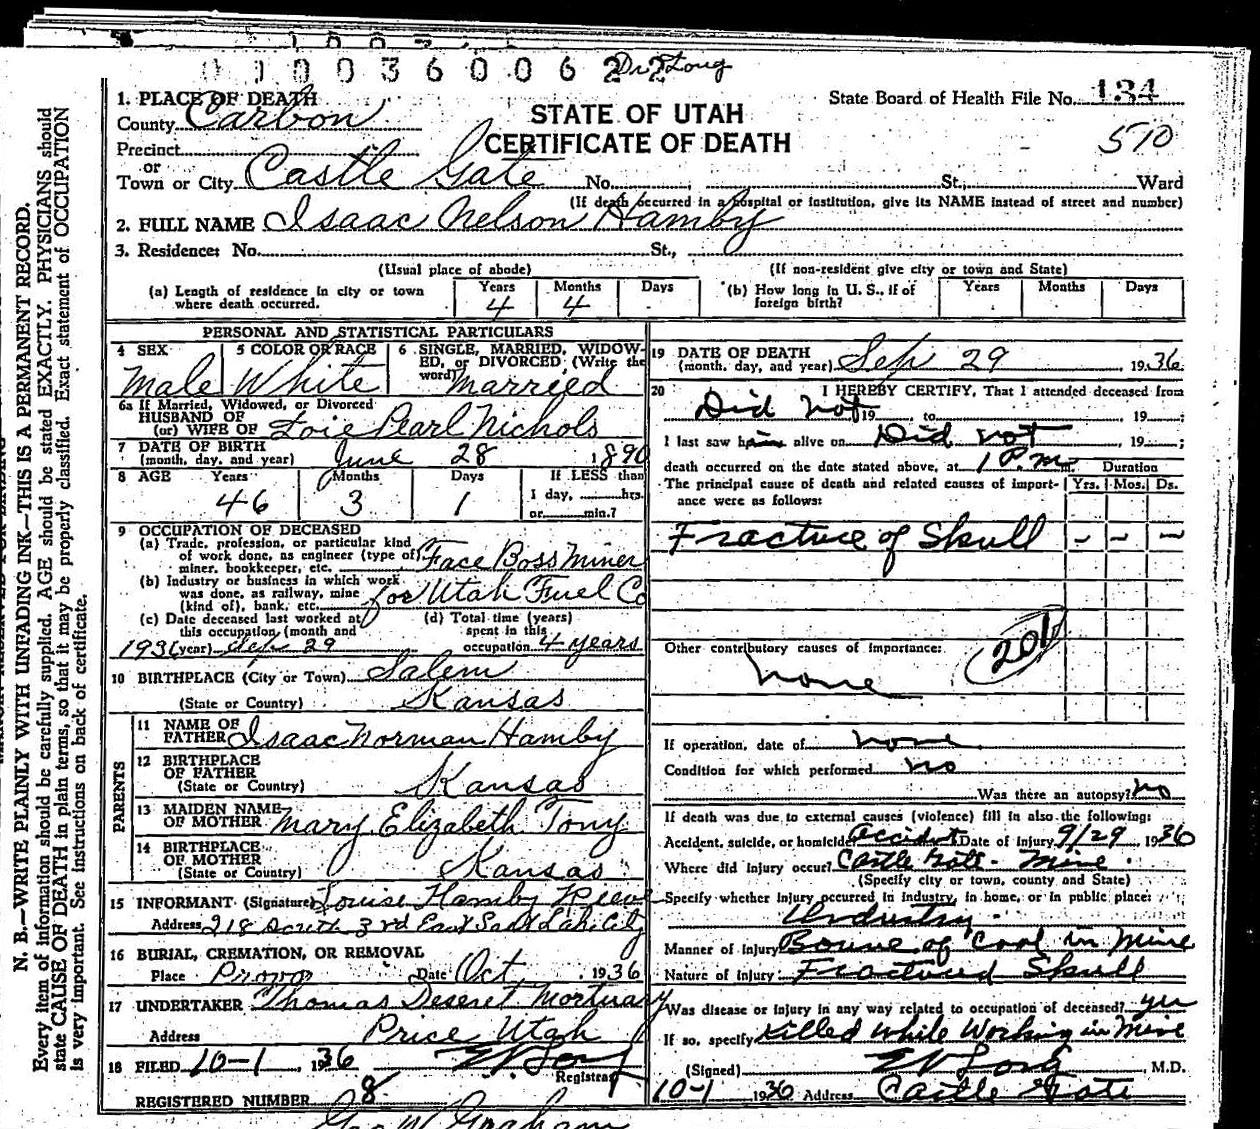 01003600622 Dr. Long
1. PLACE OF DEATH
County Carbon
STATE OF UTAH
CERTIFICATE OF DEATH
State Board of Health File No. 134
510
Precinct
or
Town or City Castle Gate No. St., Ward
(If death occurred in a hospital or institution, give its NAME instead of street and number)
2. FULL NAME Isaac Nelson Hamby
3. Residence: No. St.,
(Usual place of abode) (If non-resident give city or town and State)
(a) Length of residence in city or town where death occurred. Years 4 Months 4 Days
(b) How long in U. S., if of foreign birth? Years Months Days
PERSONAL AND STATISTICAL PARTICULARS
4 SEX Male
5 COLOR OR RACE White
6 SINGLE, MARRIED, WIDOWED, or DIVORCED (Write the word) Married
6a If Married, Widowed, or Divorced
HUSBAND OF
(or) WIFE OF Loie Pearl Nichols
7 DATE OF BIRTH
(month, day, and year) June 28 1890
8 AGE Years 46 Months 3 Days 1
If LESS than
1 day, hrs.
or min.?
9 OCCUPATION OF DECEASED
(a) Trade, profession, or particular kind
of work done, as engineer (type of)
miner, bookkeeper, etc. Face Boss Miner
(b) Industry or business in which work
was done, as railway, mine
(kind of), bank, etc. for Utah Fuel Co
(c) Date deceased last worked at
this occupation (month and
year) Sep 29 1936
(d) Total time (years)
spent in this
occupation 4 years
10 BIRTHPLACE (City or Town) Salem
(State or Country) Kansas
PARENTS
11 NAME OF
FATHER Isaac Norman Hamby
12 BIRTHPLACE
OF FATHER
(State or Country) Kansas
13 MAIDEN NAME
OF MOTHER Mary Elizabeth Tony
14 BIRTHPLACE
OF MOTHER
(State or Country) Kansas
15 INFORMANT (Signature) Louise Hamby
Address 218 South 3rd East Salt Lake City
16 BURIAL, CREMATION, OR REMOVAL
Place Provo Date Oct 1936
17 UNDERTAKER Thomas Deseret Mortuary
Address Price Utah
18 FILED 10-1, 1936 E.V. Long
Registrar
REGISTERED NUMBER 8
Geo W Graham
19 DATE OF DEATH
(month, day, and year) Sep 29 1936
20 I HEREBY CERTIFY, That I attended deceased from
Did not 19 to 19 ;
I last saw him alive on Did not, 19 ;
death occurred on the date stated above, at 1 P.m.
Duration
The principal cause of death and related causes of importance were as follows: Yrs. Mos. Ds.
Fracture of Skull - - -
Other contributory causes of importance: 201
none
If operation, date of none
Condition for which performed no
Was there an autopsy? no
If death was due to external causes (violence) fill in also the following:
Accident, suicide, or homicide? Accident Date of injury 9/29 1936
Where did injury occur? Castle Gate - Mine
(Specify city or town, county and State)
Specify whether injury occurred in industry, in home, or in public place:
Industry
Manner of Injury Boune of Coal in Mine
Nature of Injury Fractured Skull
Was disease or injury in any way related to occupation of deceased? yes
If so, specify Killed while Working in Mine
(Signed) E V Long, M.D.
10-1 1936 Address Castle Gate
N. B.—WRITE PLAINLY WITH UNFADING INK—THIS IS A PERMANENT RECORD.
Every item of information should be carefully supplied. AGE should be stated EXACTLY. PHYSICIANS should
state CAUSE OF DEATH in plain terms, so that it may be properly classified. Exact statement of OCCUPATION
is very important. See instructions on back of certificate.